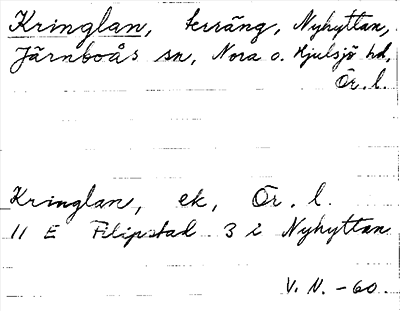 Kringlan, terräng, Nyhyttan,
Järnboås sn, Nora o. Hjulsjö hd,
Ör. l.
Kringlan, ek, Ör. l.
11 E Filipstad 3 i Nyhyttan
V. N. -60.